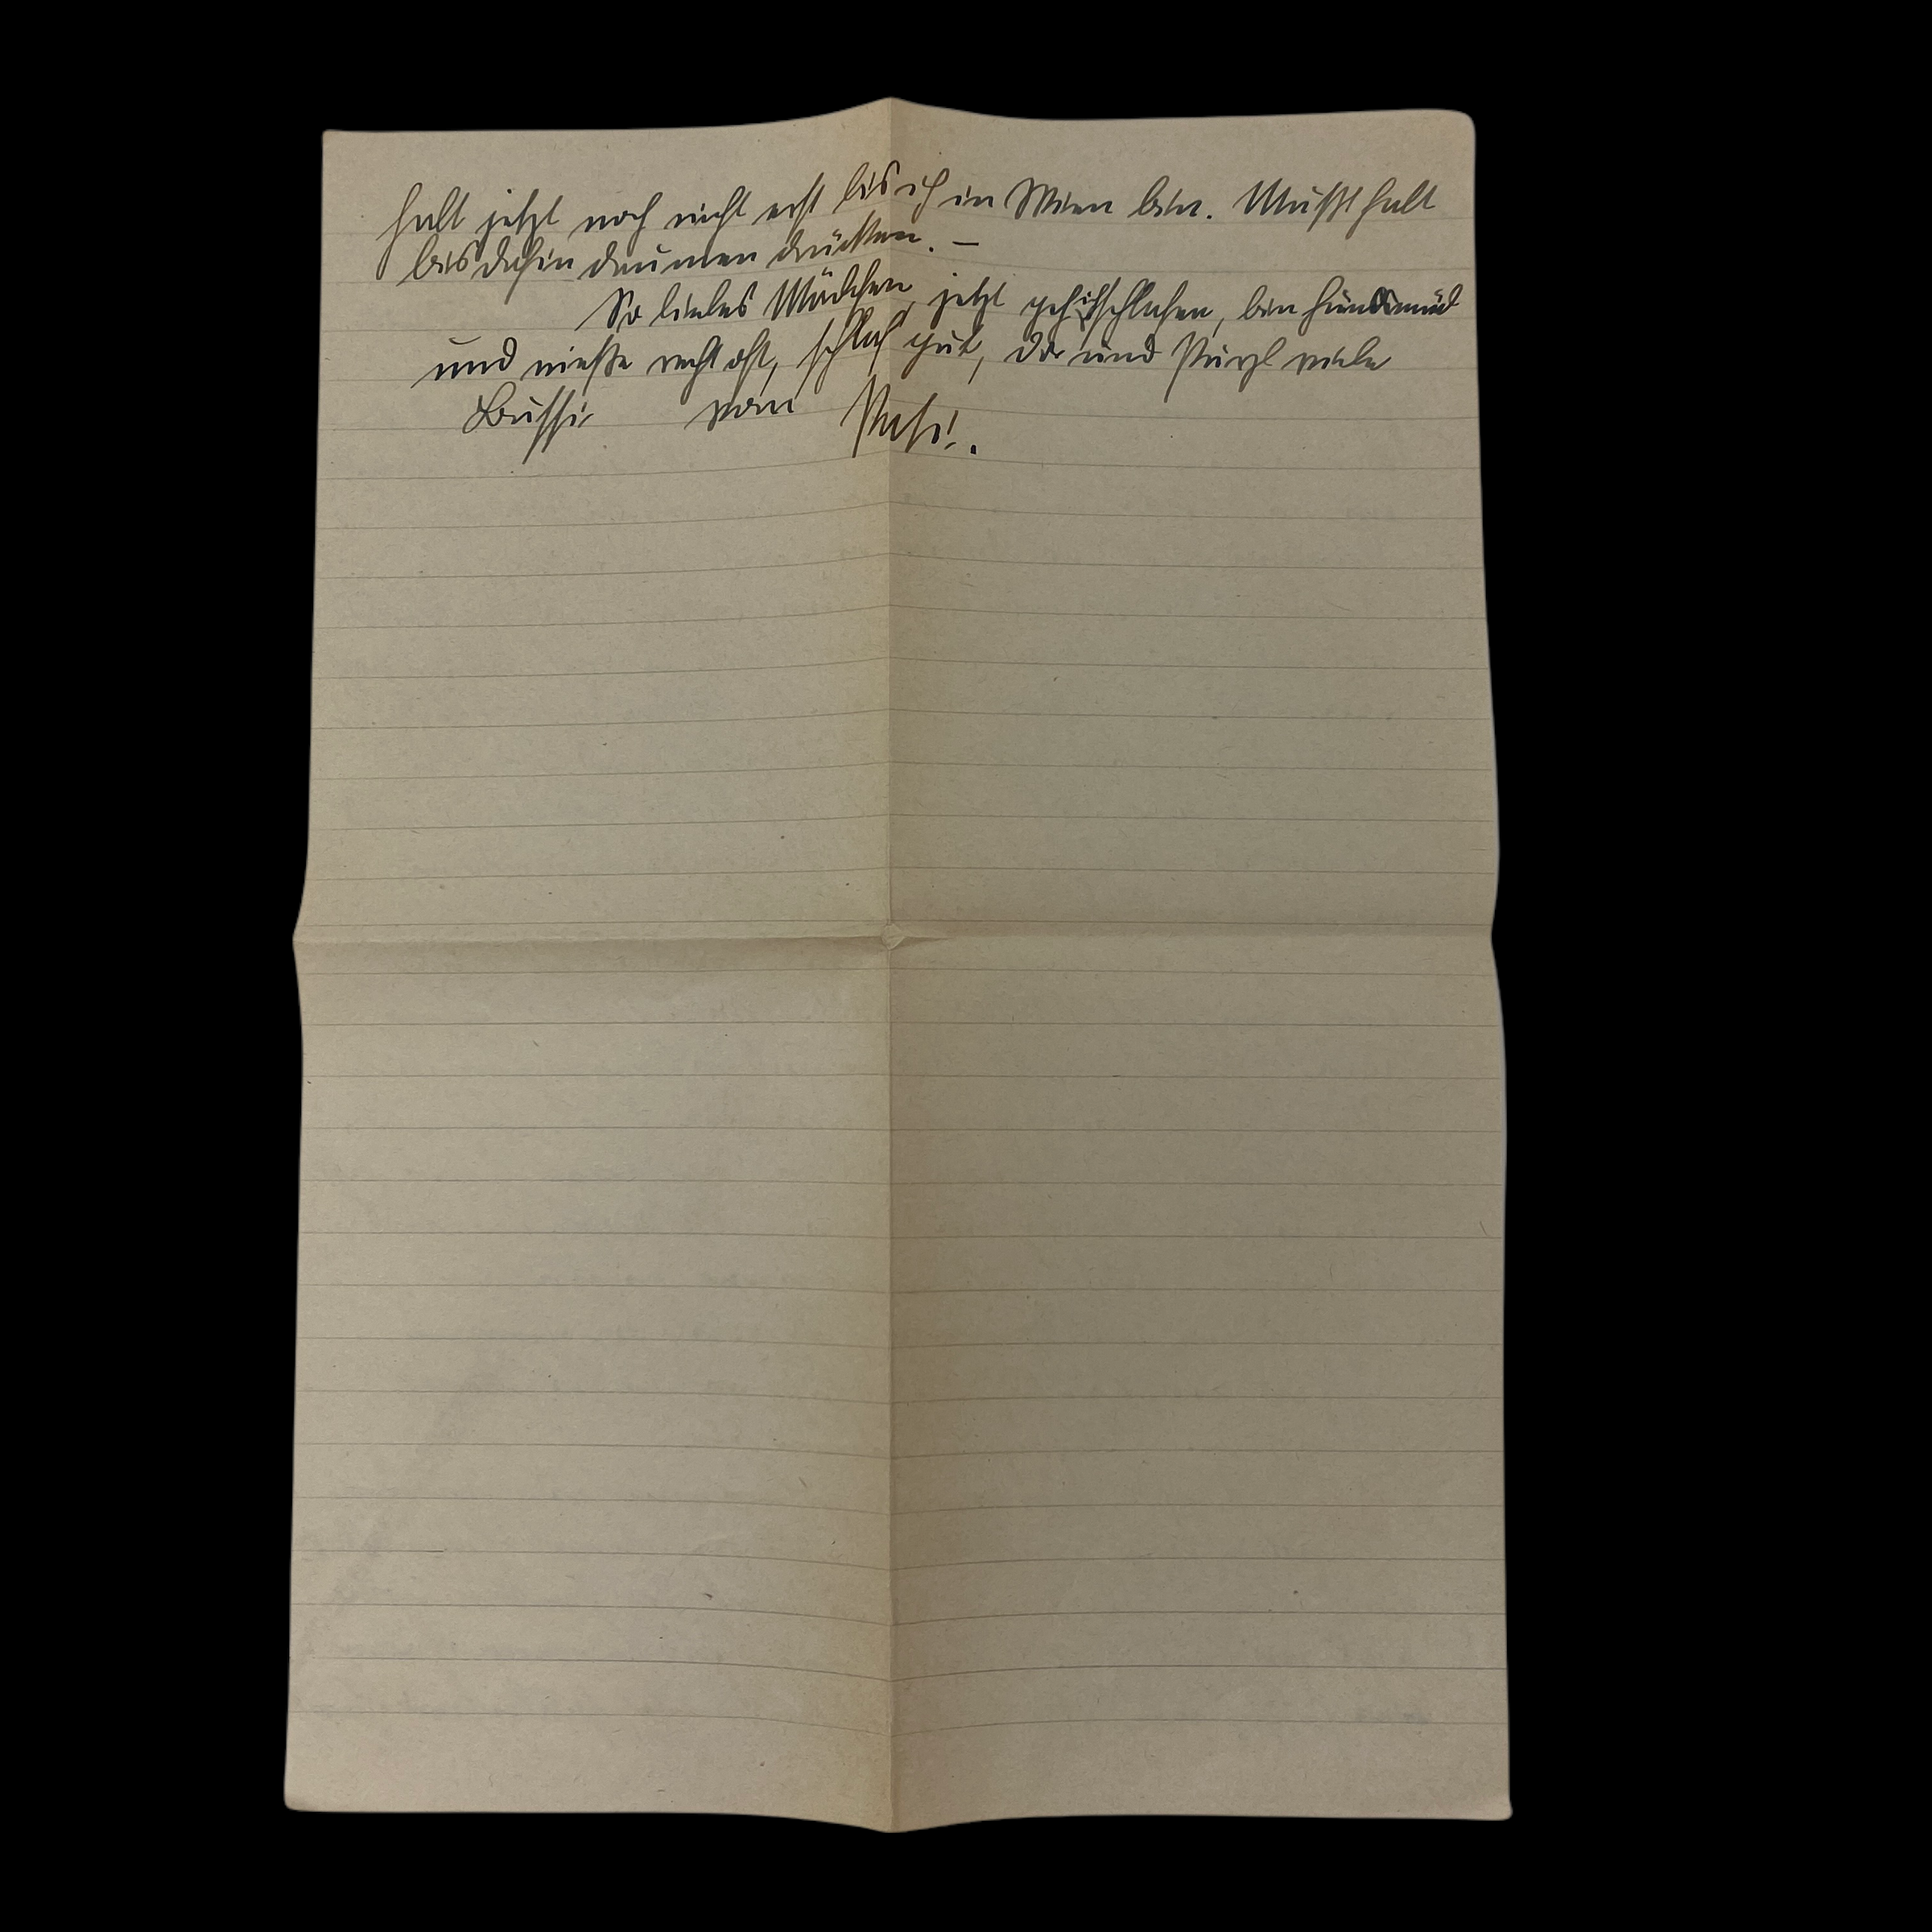 halt jetzt noch nicht erst bis ich in Wien bin. Mußt halt
bis dahin daumen drücken. –
So liebes Mädchen, jetzt geh ich schlafen, bin hundsmüd
und nieße recht oft, schlaf gut, Dir und Purzl viele
Bussi vom